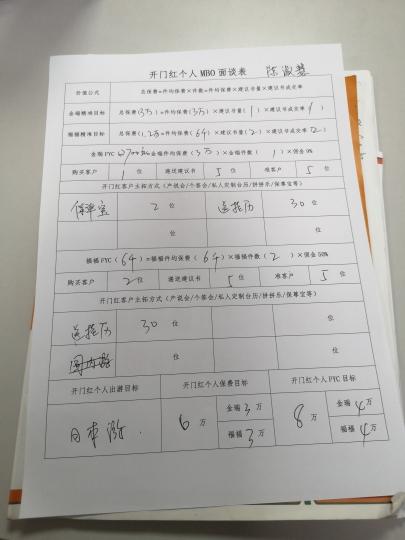 开门红个人 MBO 面谈表 陈淑慧
价值公式 总保费=件均保费×件数=件均保费×建议书量×建议书成交率
金瑞精准目标 总保费(3万)=件均保费(3万)×建议书量(1)×建议书成交率(1
福福精准目标 总保费(1.2万=件均保费(64)×建议书量(2)×建议书成交率(2)
金瑞 FYC 2700元=金瑞件均保费(3万)×金瑞件数(1)×佣金 9%
购买客户 1 位 递送建议书 5 位 准客户 5 位
开门红客户主拓方式(产说会/个答会/私人定制台历/拼拼乐/保尊宝等)
保单宝 2 位 送挂历 30 位
位 位
福福 FYC(64)=福福件均保费(64)×福福件数(2)×佣金 50%
购买客户 2 位 递送建议书 5 位 准客户 5 位
开门红客户主拓方式(产说会/个答会/私人定制台历/拼拼乐/保尊宝等)
送挂历 30 位 位
位 位
开门红个人出游目标 开门红个人保费目标 开门红个人 FYC 目标
日本游. 6 万 金瑞 3 万 8 万 金瑞 4 万
福福 3 万 福福 4 万